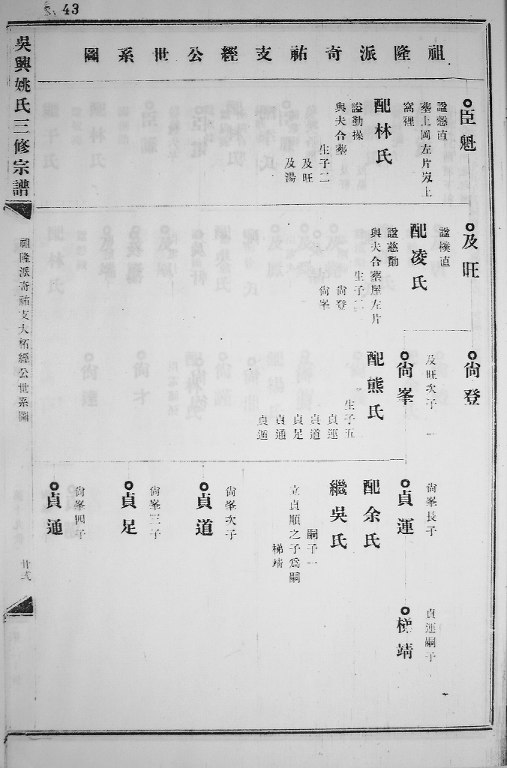 S. 43
祖隆派奇祐支經公世系圖
臣魁
諡愨直
墓土岡左片㘭上
窩裡
配林氏
諡勤操
與夫合墓
生子二
及旺
及湯
及旺
諡樸直
配凌氏
諡慈勤
與夫合墓屋左片
生子二
尙登
尙峯
尙登
尙峯
及旺次子
配熊氏
生子五
貞運
貞道
貞足
貞通
貞通
貞運
尙峯長子
配余氏
繼吳氏
嗣子一
梯靖
立貞順之子爲嗣
貞道
尙峯次子
貞足
尙峯三子
貞通
尙峯四子
梯靖
貞運嗣子
吳興姚氏三修宗譜
祖隆派奇祐支大柘經公世系圖